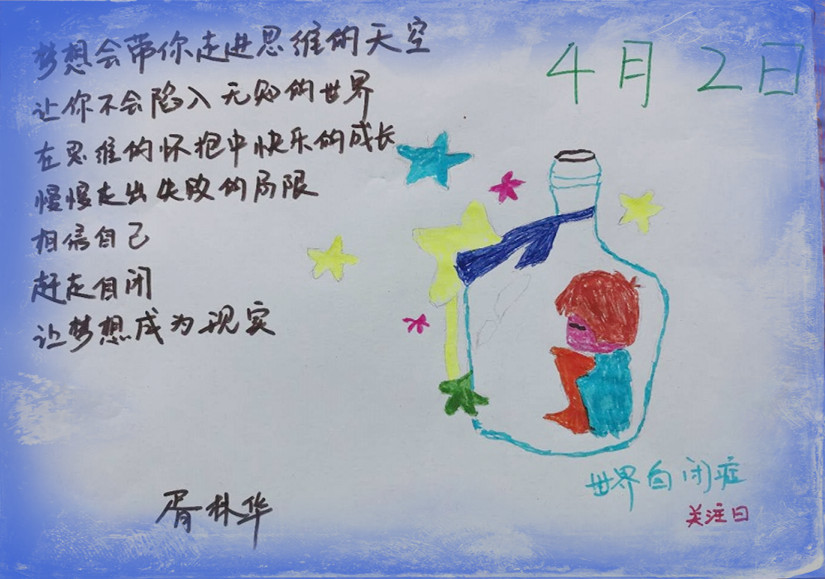 梦想会带你走进思维的天空
让你不会陷入无知的世界
在思维的怀抱中快乐的成长
慢慢走出失败的局限
相信自己
赶走自闭
让梦想成为现实
胥林华
4月2日
世界自闭症
关注日